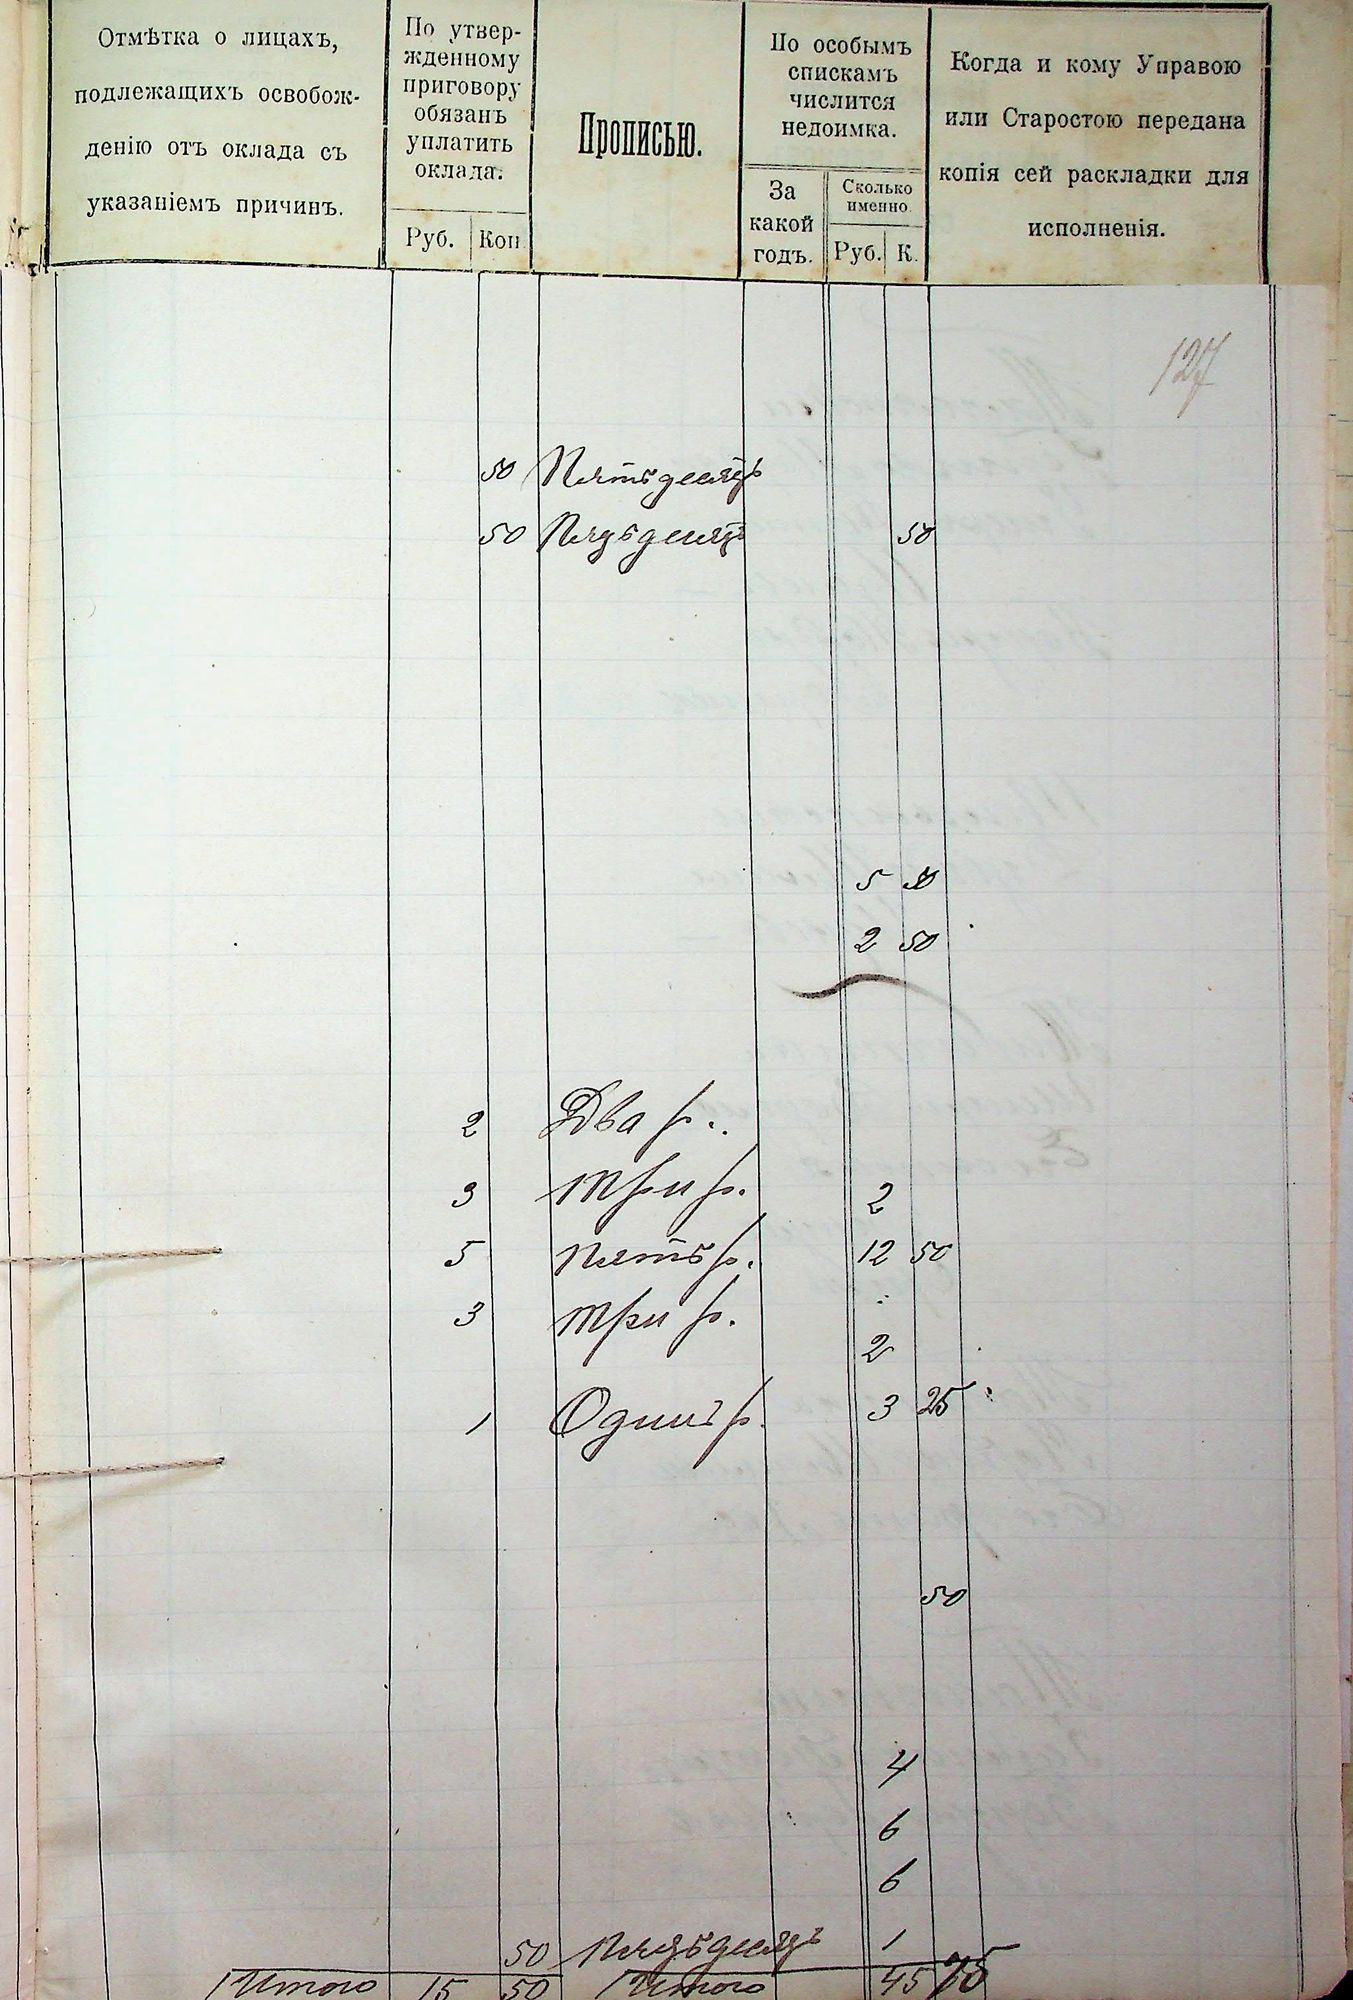 Отмѣтка о лицахъ,
подлежащихъ освобож-
денію отъ оклада съ
указаніемъ причинъ.
По утвер-
жденному
приговору
обязанъ
уплатить
оклада.
Руб. Коп
Прописью.
По особымъ
спискамъ
числится
недоимка.
За
какой
годъ.
Сколько
именно
Руб. К.
Когда и кому Управою
или Старостою передана
копія сей раскладки для
исполненія.
127
50 Пятьдесятъ
50 Пядьдесятъ 50
5 50
2 50
2 Два р.
3 три р. 2
5 пять р. 12 50
3 три р.
2
1 Одинъ р. 3 25
50
4
6
6
50 пядьдесядъ 1
Итого 15 50 Итого 45 75